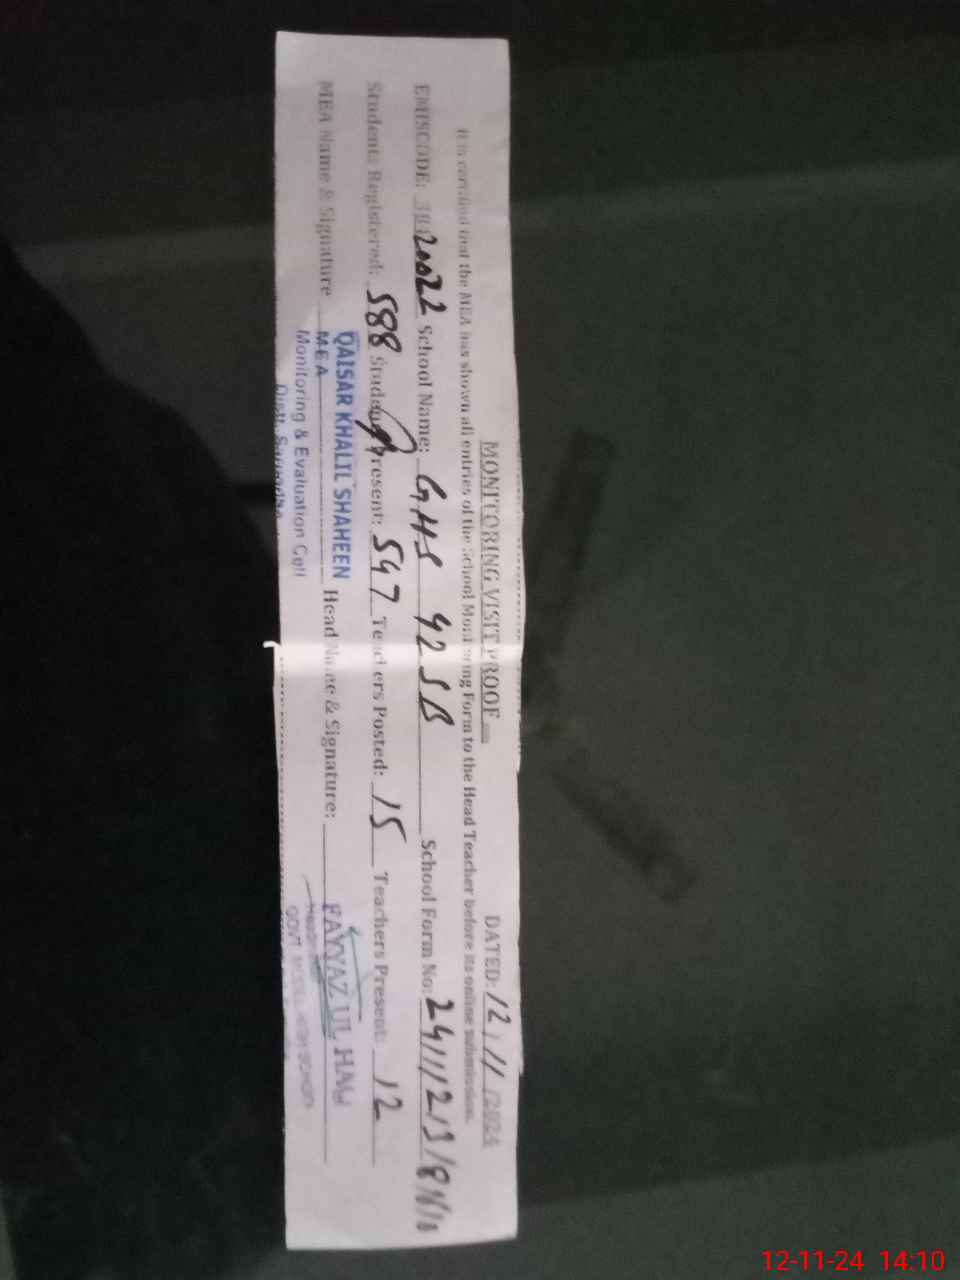 MONITORING VISIT PROOF
DATED: 12/11/2024
It is certified that the MEA has shown all entries of the School Monitoring Form to the Head Teacher before its online submission.
EMISCODE: 38420022 School Name: GHS 92 SB School Form No:
Students Registered: 588 Students Present: 547 Teachers Posted: 15 Teachers Present: 12
MEA Name & Signature Head Name & Signature:
QAISAR KHALIL SHAHEEN
MEA
Monitoring & Evaluation Cell
Distt. Sargodha
FAYYAZ UL HAQ
12-11-24 14:10